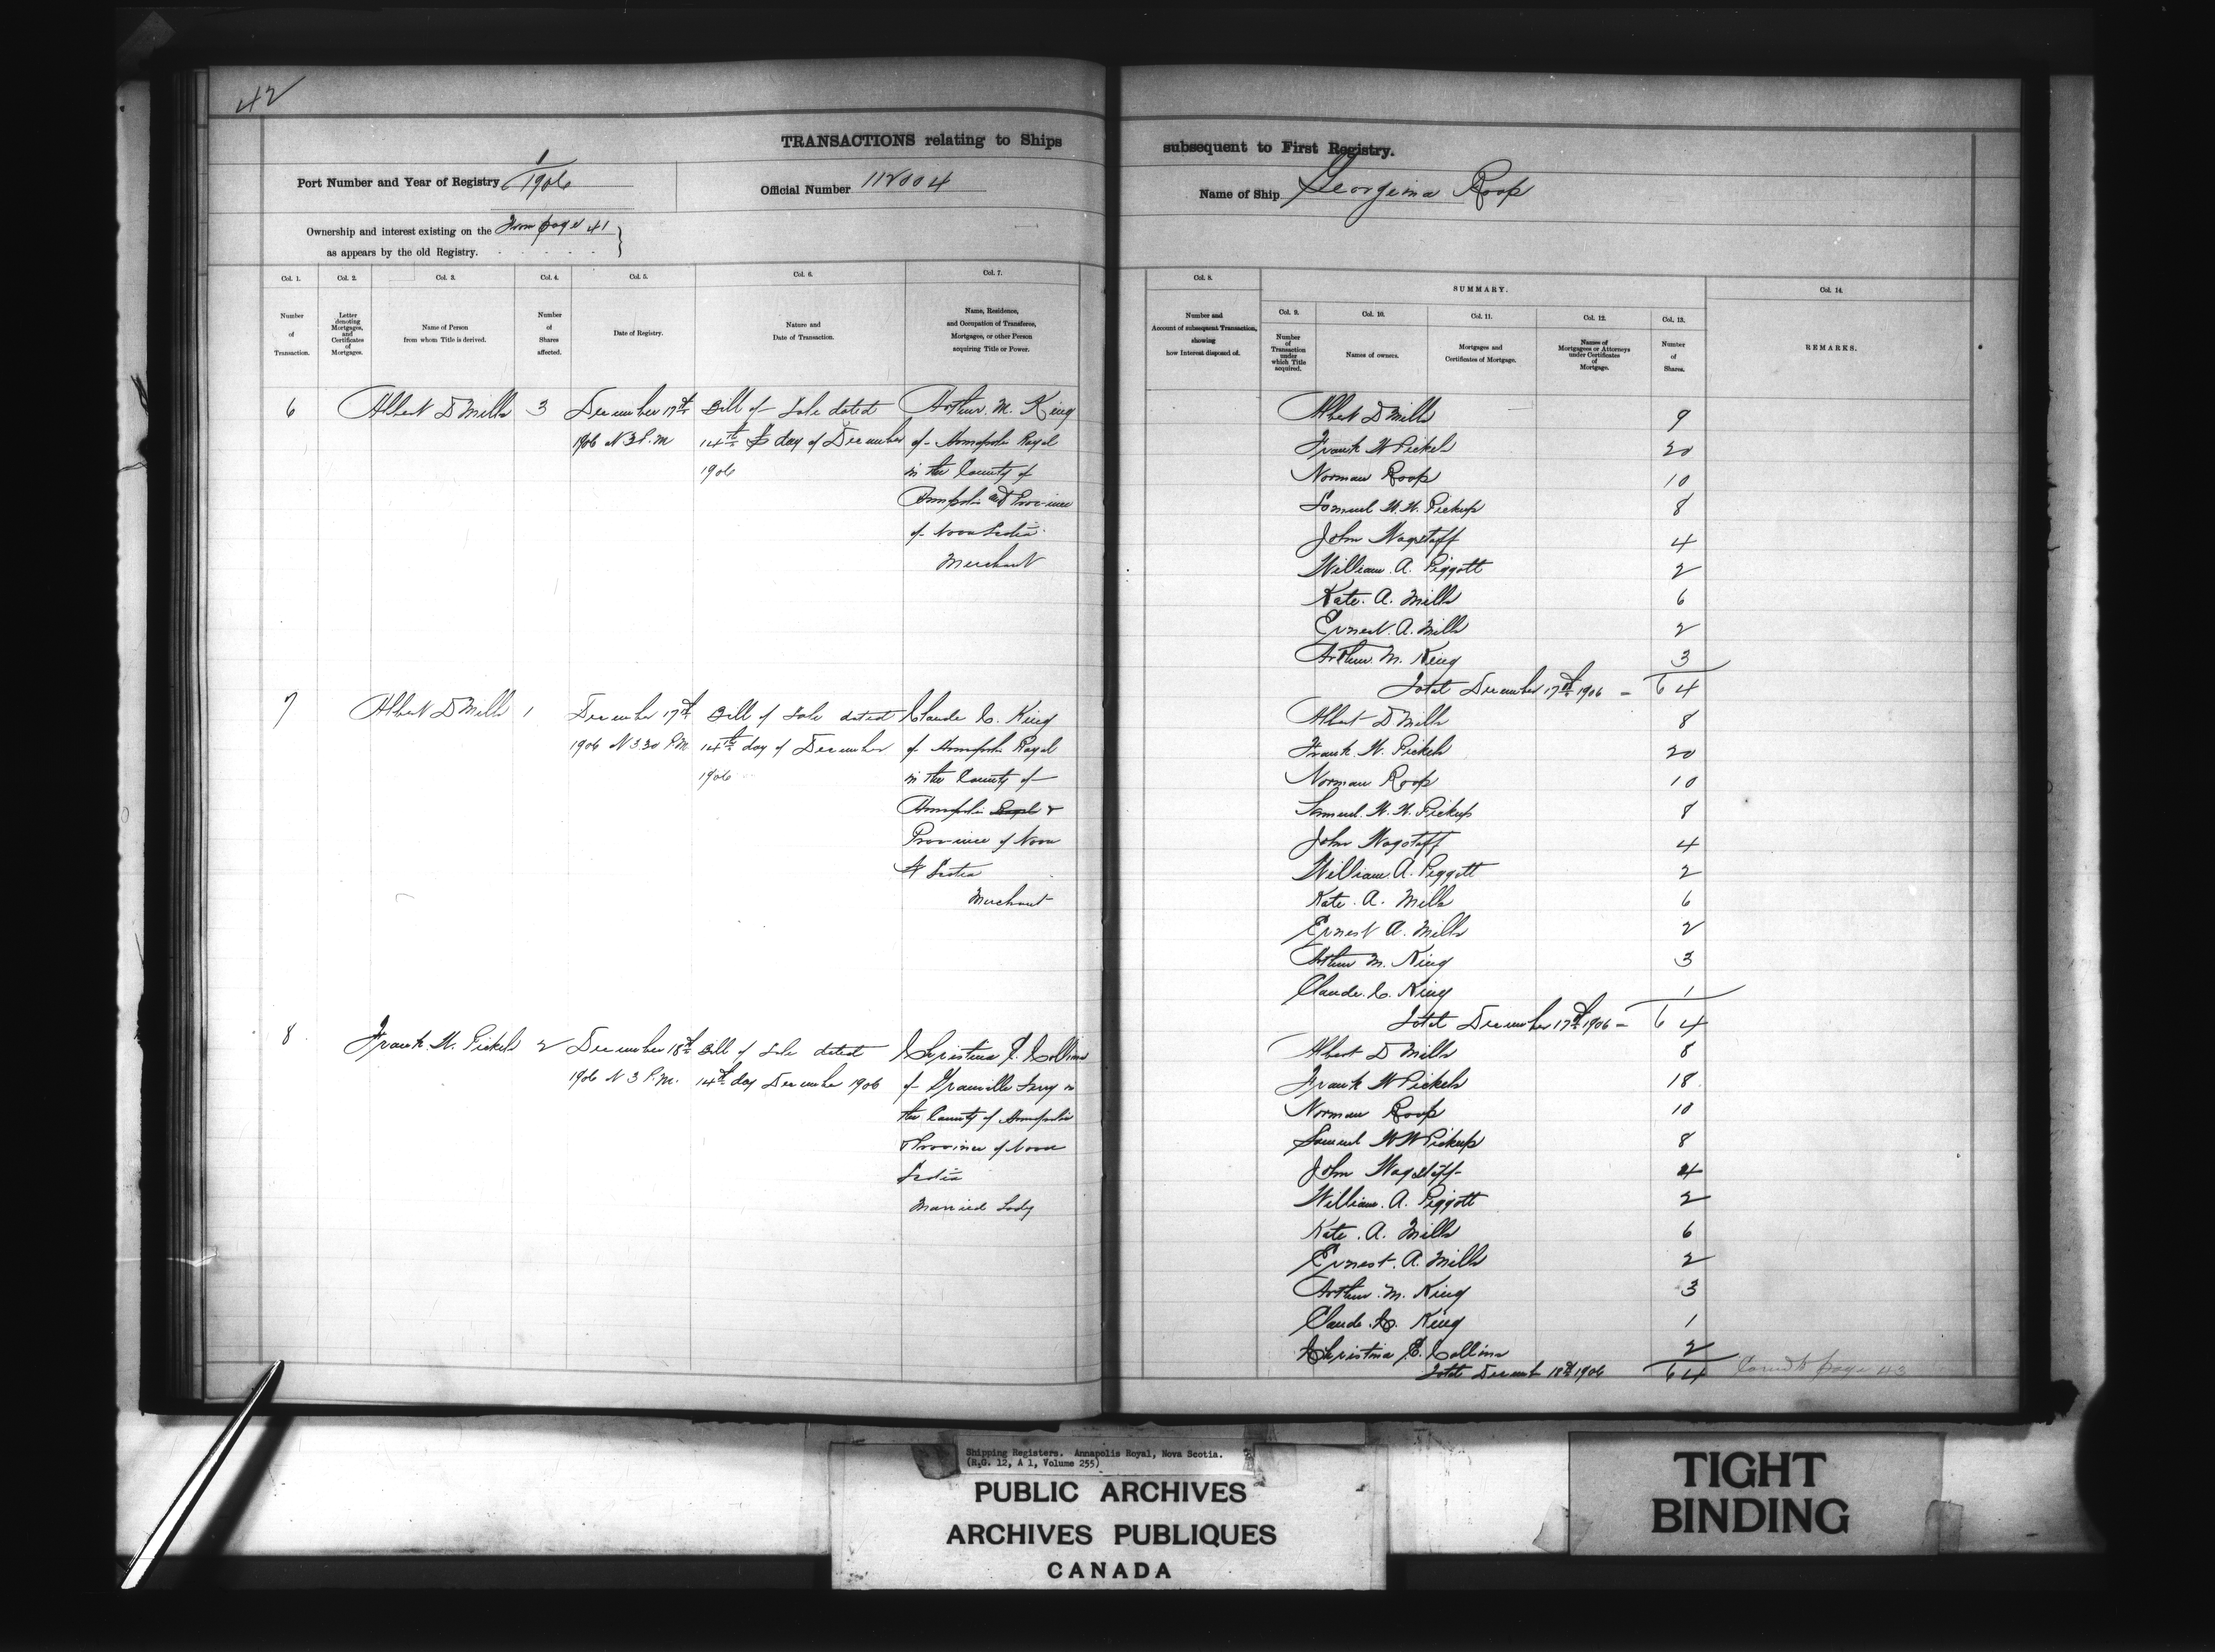 42
TRANSACTIONS relating to Ships
subsequent to First Registry.
Port Number and Year of Registry 1/1906
Official Number 112004
Name of Ship Georgina Roop
Ownership and interest existing on the From page 41
as appears by the old Registry.
Col. 1. Col. 2. Col. 3. Col. 4. Col. 5. Col. 6. Col. 7.
Number of Transaction.
Letter denoting Mortgages, and Certificates of Mortgages.
Name of Person from whom Title is derived.
Number of Shares affected.
Date of Registry.
Nature and Date of Transaction.
Name, Residence, and Occupation of Transferee, Mortgagee, or other Person acquiring Title or Power.
6 Albert D Mills 3 December 17th Bill of Sale dated Arthur. M. King
1906 at 3 P.M 14th day of December of Annapolis Royal
1906 in the County of
Annapolis and Province
of Nova Scotia
Merchant
7 Albert D Mills 1 December 17th Bill of Sale dated Claude C. King
1906 at 3 30 P.M. 14th day of December of Annapolis Royal
1906 in the County of
Annapolis Royal &
Province of Nova
Scotia
Merchant
8 Frank. W. Pickels 2 December 18th Bill of Sale dated Christina E. Collins
1906 at 3 P.M. 14th day December 1906 of Granville Ferry in
the County of Annapolis
Province of Nova
Scotia
Married Lady
Col. 8.
Number and Account of subsequent Transaction, showing how Interest disposed of.
SUMMARY.
Col. 9. Col. 10. Col. 11. Col. 12. Col. 13. Col. 14.
Number of Transaction under which Title acquired.
Names of owners.
Mortgages and Certificates of Mortgage.
Names of Mortgagees or Attorneys under Certificates of Mortgage.
Number of Shares.
REMARKS.
Albert D Mills 9
Frank W Pickels 20
Norman Roop 10
Samuel W. W. Pickup 8
John Wagstaff 4
William. A. Piggott 2
Kate. A. Mills 6
Ernest. A. Mills 2
Arthur. M. King 3
Total December 17th 1906 - 64
Albert D Mills 8
Frank. W. Pickels 20
Norman Roop 10
Samuel. W. W. Pickup 8
John Wagstaff 4
William. A. Piggott 2
Kate. A. Mills 6
Ernest A. Mills 2
Arthur M. King 3
Claude. C. King 1
Total December 17th 1906 - 64
Albert D Mills 8
Frank W Pickels 18
Norman Roop 10
Samuel W W Pickup 8
John Wagstaff 4
William. A. Piggott 2
Kate. A. Mills 6
Ernest. A. Mills 2
Arthur. M. King 3
Claude C. King 1
Christina E. Collins 2
Total December 18th 1906 64 page 43
Shipping Registers. Annapolis Royal, Nova Scotia.
(R.G. 12, A 1, Volume 255)
PUBLIC ARCHIVES
ARCHIVES PUBLIQUES
CANADA
TIGHT
BINDING